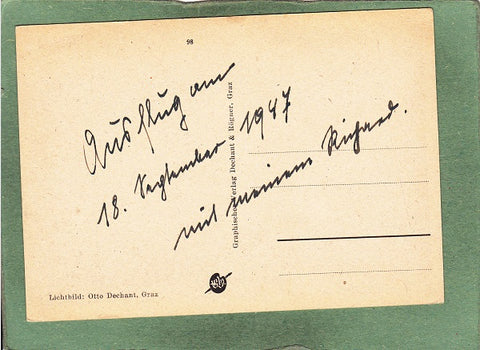 98
Ausflug am
18. September 1947
mit meinem Richard.
Graphischer Verlag Dechant & Rögner, Graz
Lichtbild: Otto Dechant, Graz